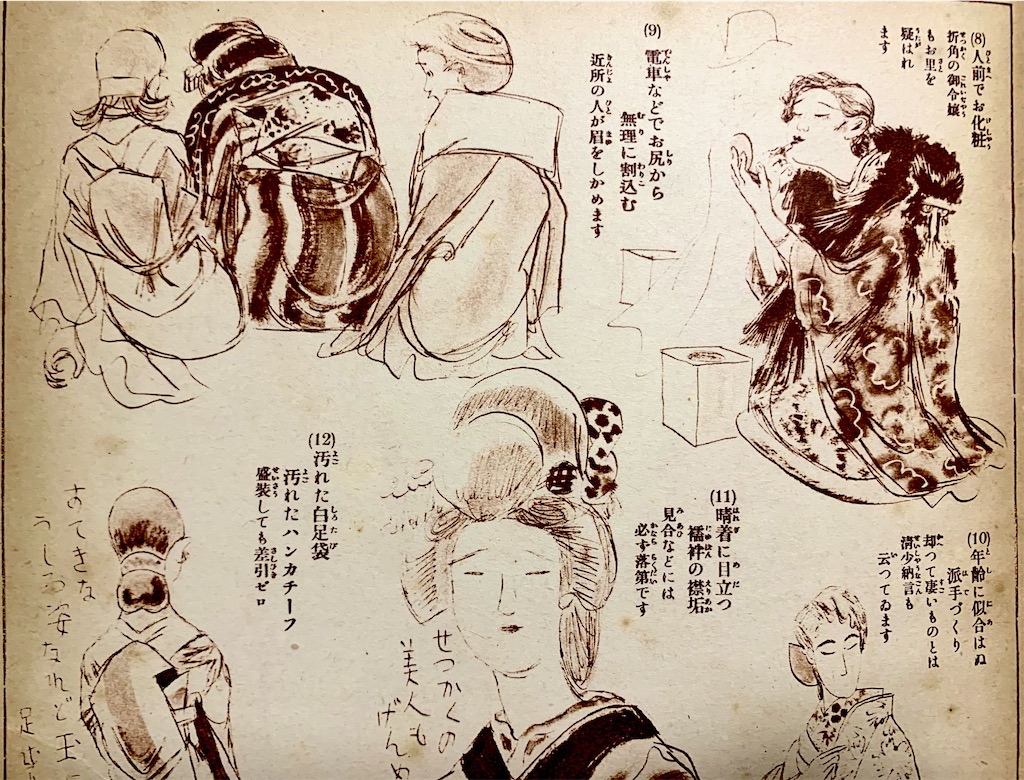 (8)人前でお化粧
折角の御令嬢
もお里を
疑はれ
ます
(9)電車などでお尻から
無理に割込む
近所の人が眉をしかめます
(10)年齢に似合はぬ
派手づくり
却つて凄いものとは
清少納言も
云つてゐます
(11)晴着に目立つ
襦袢の襟垢
見合などには
必ず落第です
(12)汚れた白足袋
汚れたハンカチーフ
盛装しても差引ゼロ
せつかくの
美人も
げんめ
すてきな
うしろ姿なれど玉
足